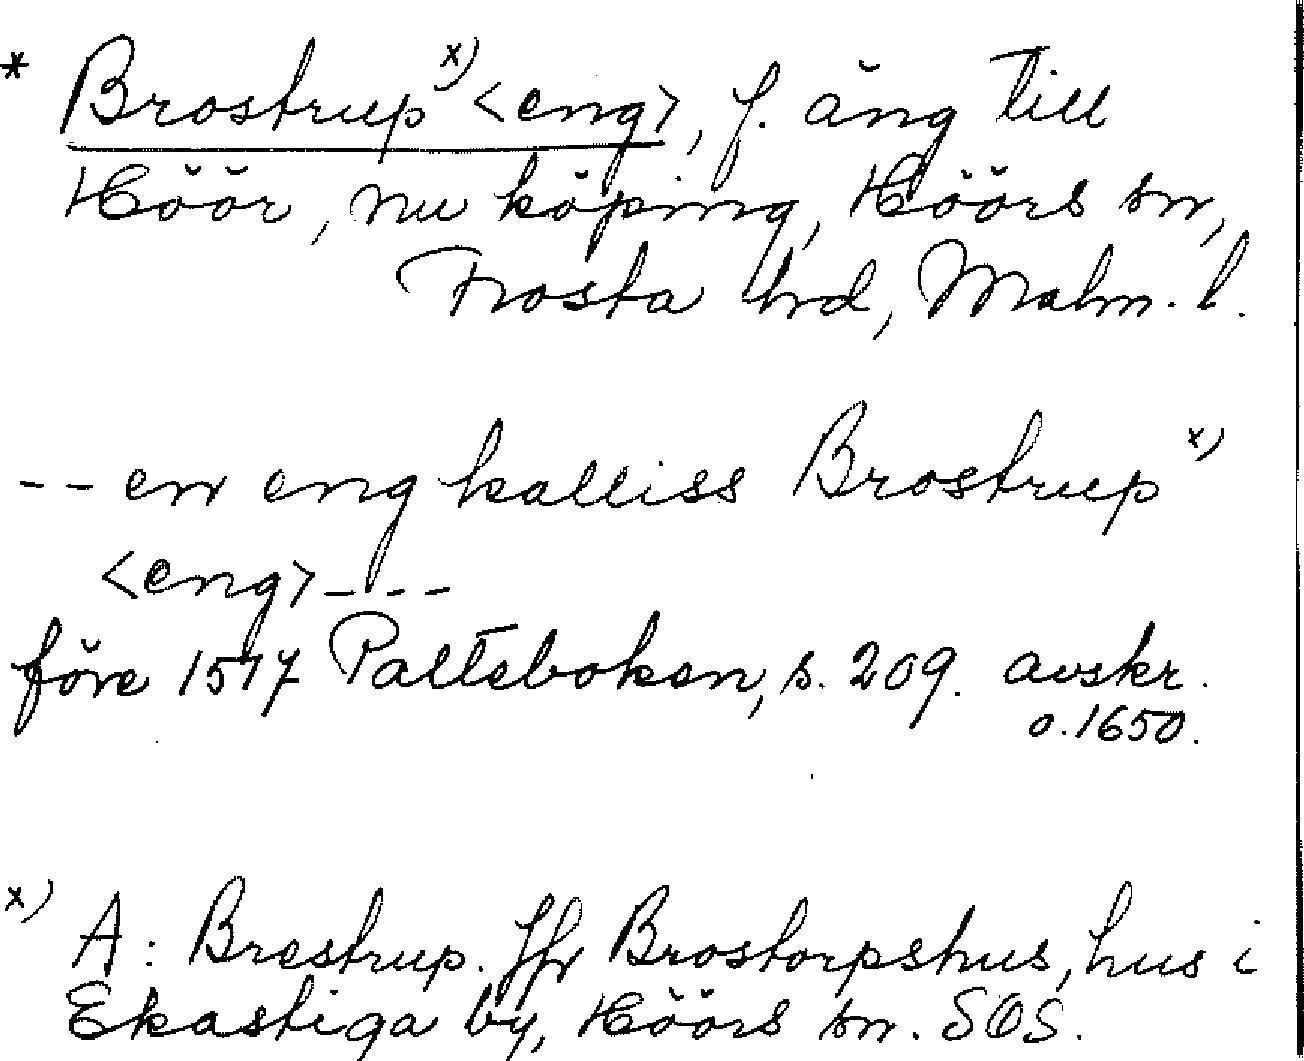 * Brostrup x) <eng>, f. äng till
Höör, nu köping, Höörs sn,
Frosta hrd, Malm. l.
-- en eng kalliss Brostrup x)
<eng>----
före 1517 Palteboken, s. 209. avskr.
o. 1650.
x) A: Brestrup. Jfr Brostorpshus, hus i
Ekastiga by, Höörs sn. SOS.